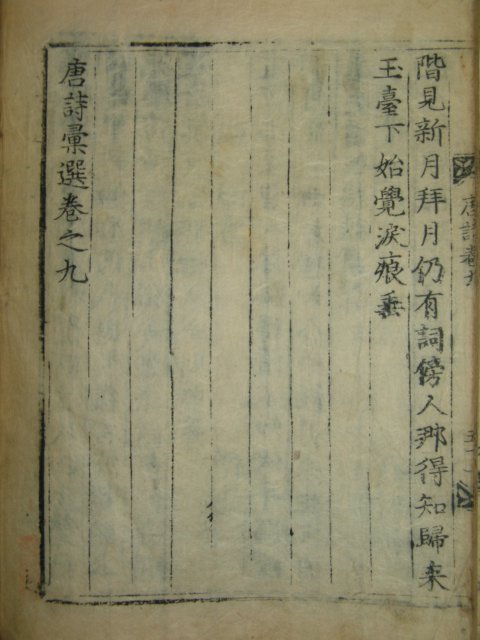 唐詩卷九
階見新月拜月仍有詞傍人那得知歸来
玉臺下始覺淚痕垂
唐詩彙選卷之九